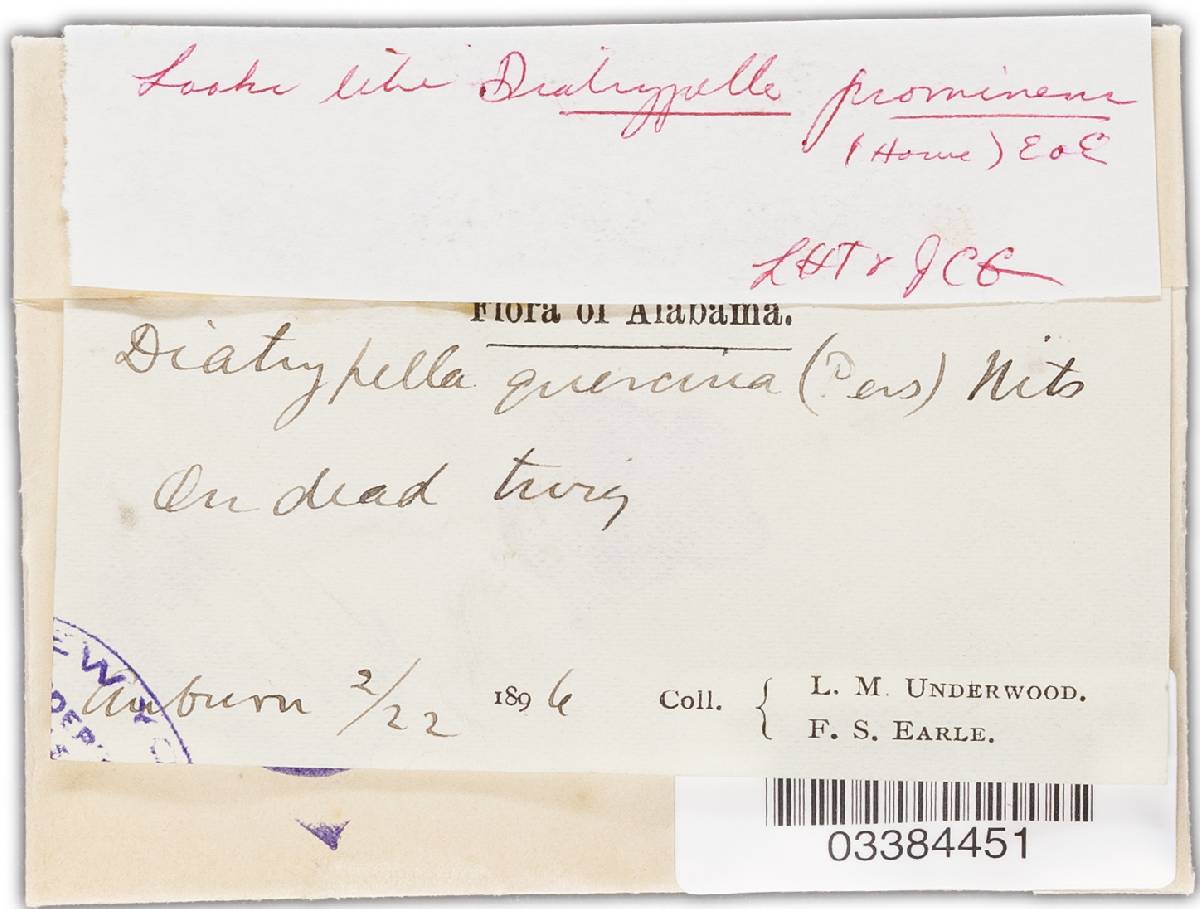 Looks like Diatrypella prominens
(Howe) E & E
LHT & JCG
Flora of Alabama.
Diatrypella quercina (Pers) Nits
On dead twig
Auburn 2/22 1896 Coll. { L. M. UNDERWOOD.
F. S. EARLE.
EW Y
03384451